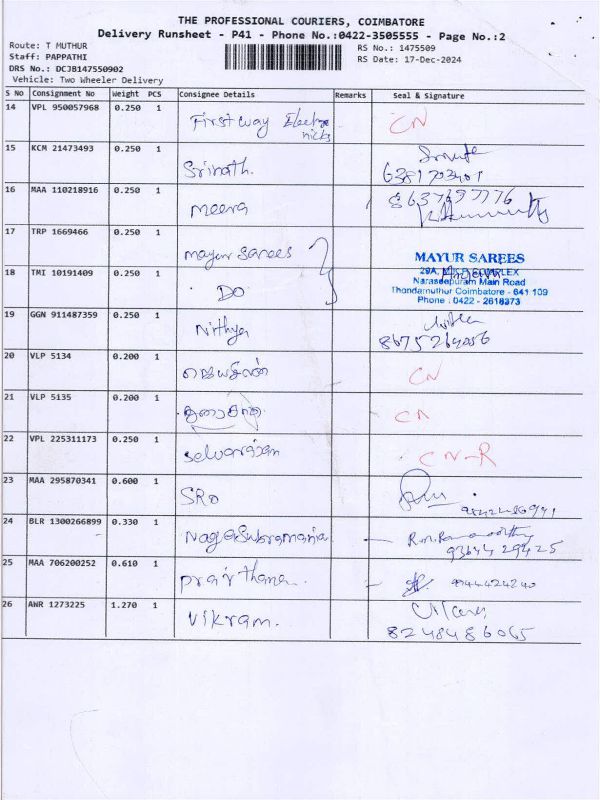 THE PROFESSIONAL COURIERS, COIMBATORE
Delivery Runsheet - P41 - Phone No.:0422-3505555 - Page No.:2
Route: T MUTHUR
RS No.: 1475509
Staff: PAPPATHI
RS Date: 17-Dec-2024
DRS No.: DCJB147550902
Vehicle: Two Wheeler Delivery
S No Consignment No Weight PCS Consignee Details Remarks Seal & Signature
14 VPL 950057968 0.250 1 First way Electro nicks CN
15 KCM 21473493 0.250 1 Srinath.
6381703401
16 MAA 110218916 0.250 1 meera
17 TRP 1669466 0.250 1 mayur sarees
MAYUR SAREES
18 TMI 10191409 0.250 1 DO
Naraseepuram Main Road
Thondamuthur Coimbatore - 641 109
Phone : 0422 - 2618373
19 GGN 911487359 0.250 1 Nithya
20 VLP 5134 0.200 1 CN
21 VLP 5135 0.200 1 CN
22 VPL 225311173 0.250 1 selvarajan CN-R
23 MAA 295870341 0.600 1 SRO
24 BLR 1300266899 0.330 1 NagaSubramania
93644 29425
25 MAA 706200252 0.610 1 prairthana..
9944424240
26 AWR 1273225 1.270 1 Vikram.
8248486065